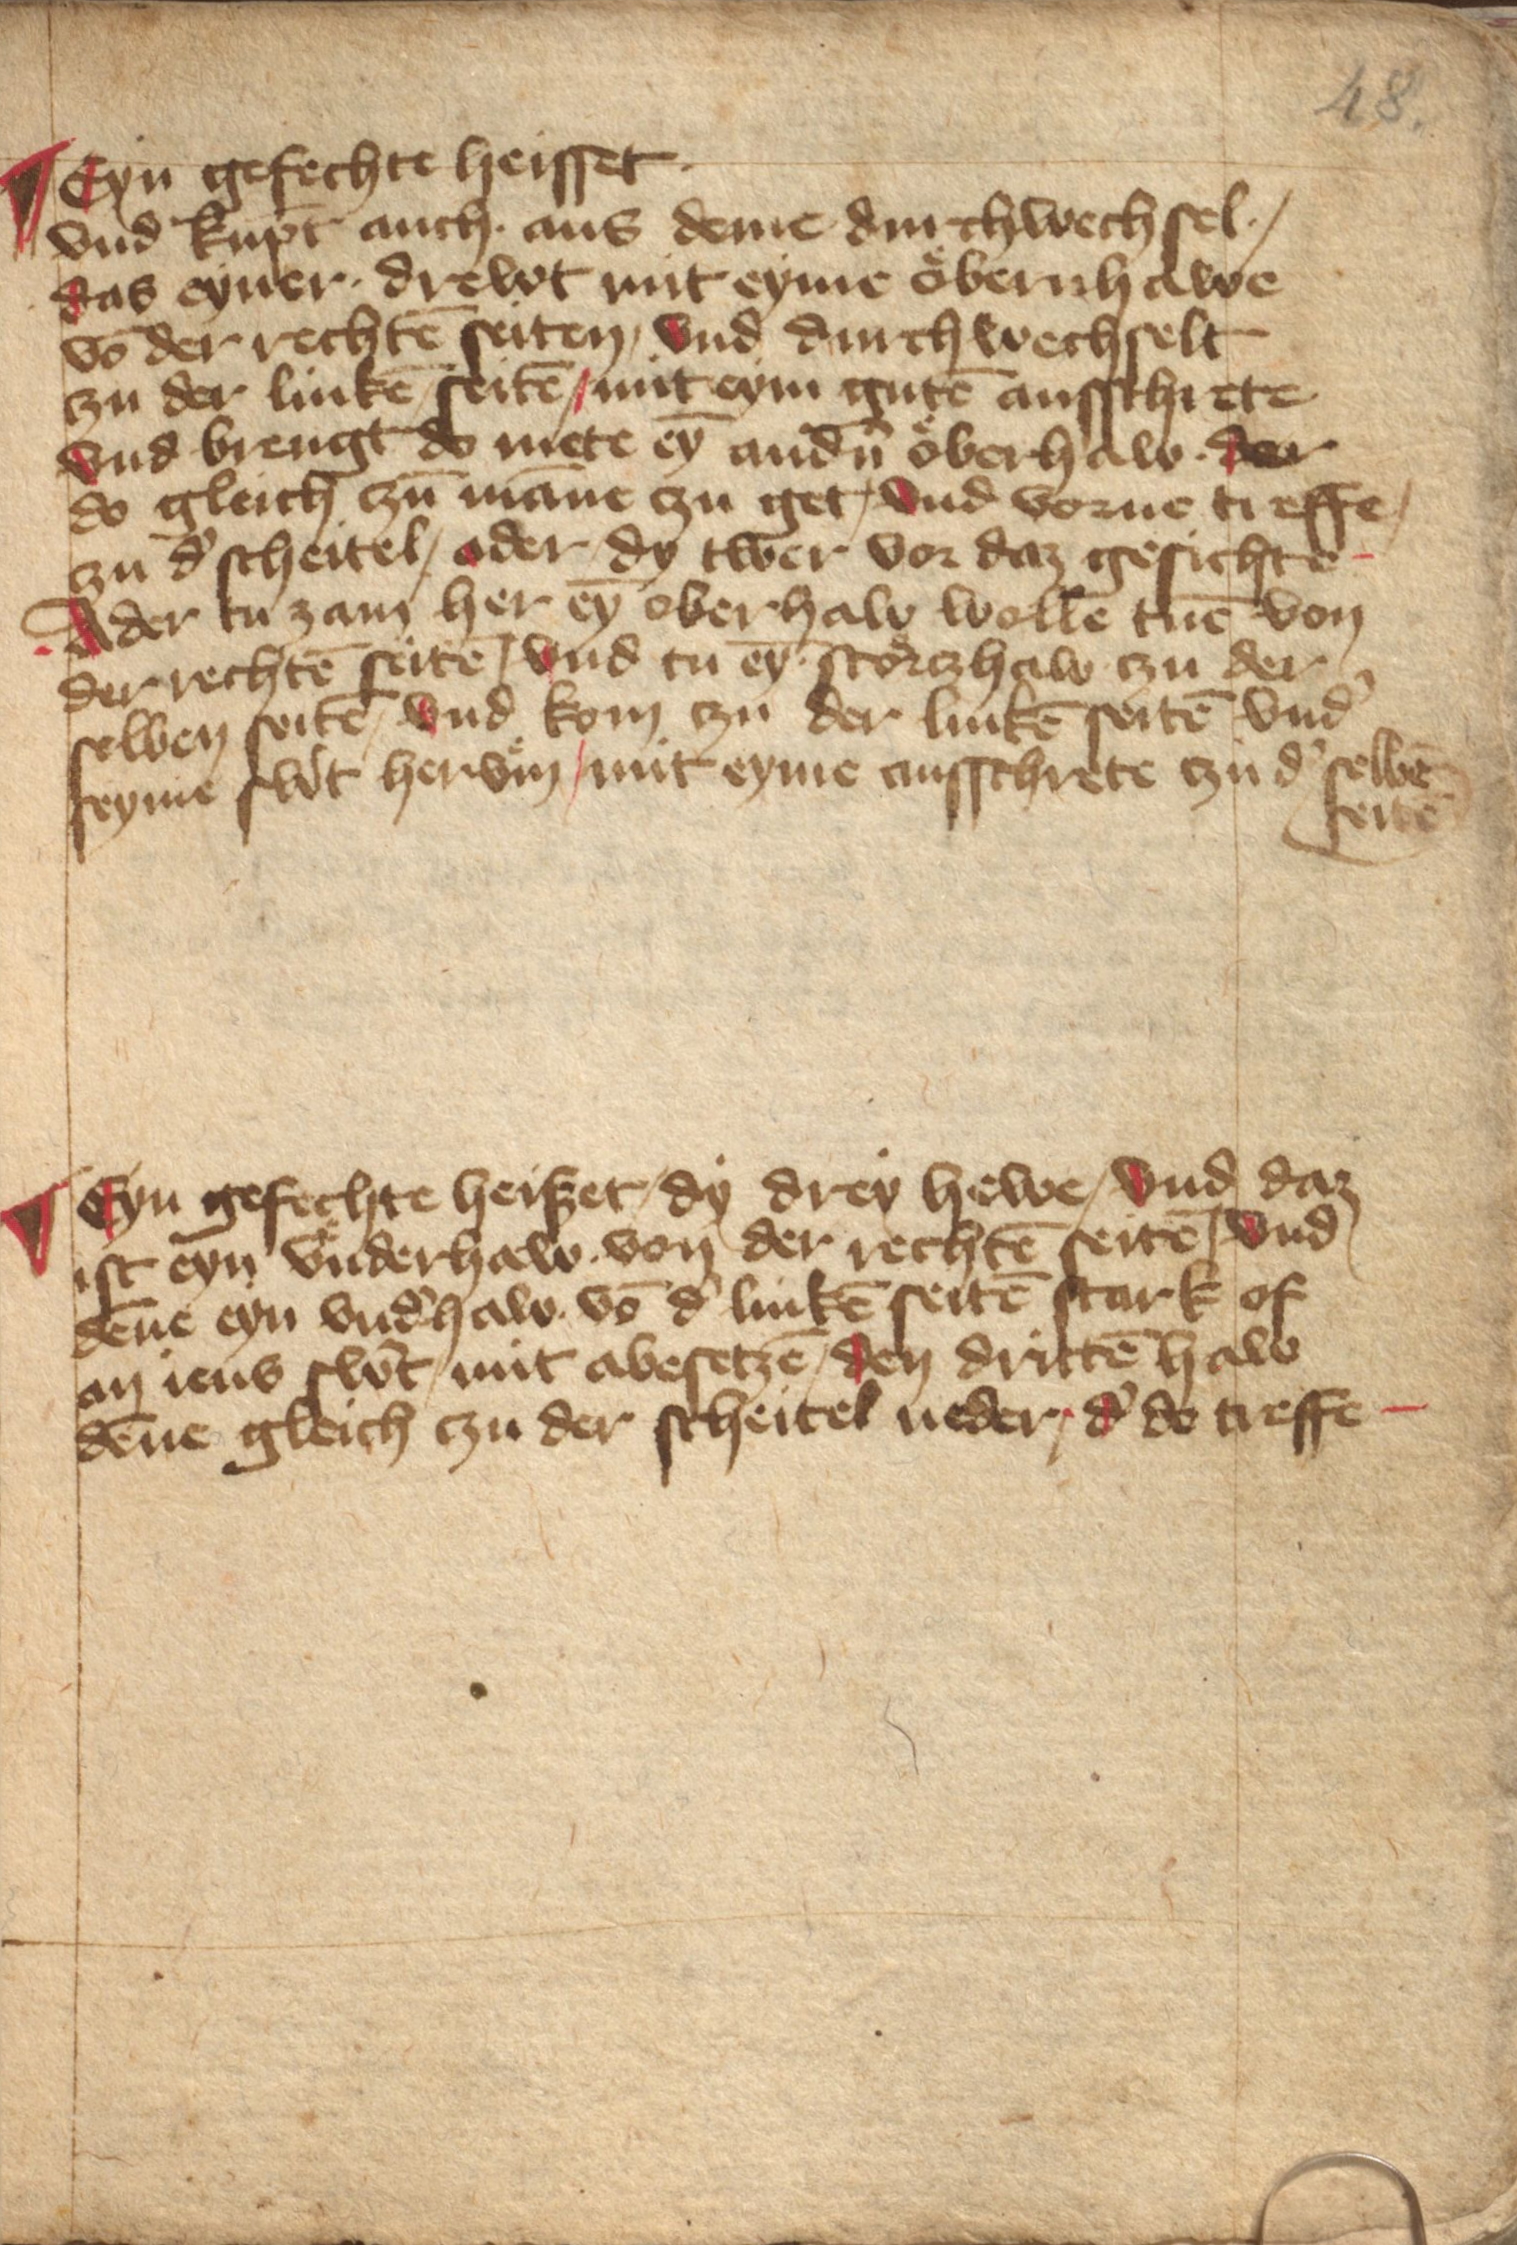 48.
¶ Eyn gefechte heisset ·
vnd kūpt auch · aus deme durchwechsel · /
das eyner · drewt mit eyme öbernhawe
vō der rechtē seiten / vnd durchwechselt
zu der linkē seitē / mit eym gutē ausschrete
vnd brengt do mete eȳ andˀn öberhaw · der
do gleich zūm māne zu get / vnd vorne treffe /
zu dˀ scheitel / ader dy twer vor daz gesichte –
Ader tu zam her eȳ oberhaw wolle tuē von
der rechtē seitē / vnd tu eȳ · störtzhaw · zu der
selben seitē / vnd kom zu der linkē seitē vndˀ
seyme swˀt hervm̈ / mit eyme ausschrete zu dˀ selbē
seitē
¶ Eyn gefechte heisset / dy drey hewe / vnd daz
ist eyn vnderhaw · von der rechtē seitē / vnd
dēne eyn vndˀhaw · vō dˀ linkē seitē stark of
an iens swˀt / mit abesetzē / den drittē haw
dēne gleich zu der scheitel neder / dˀ do treffe –